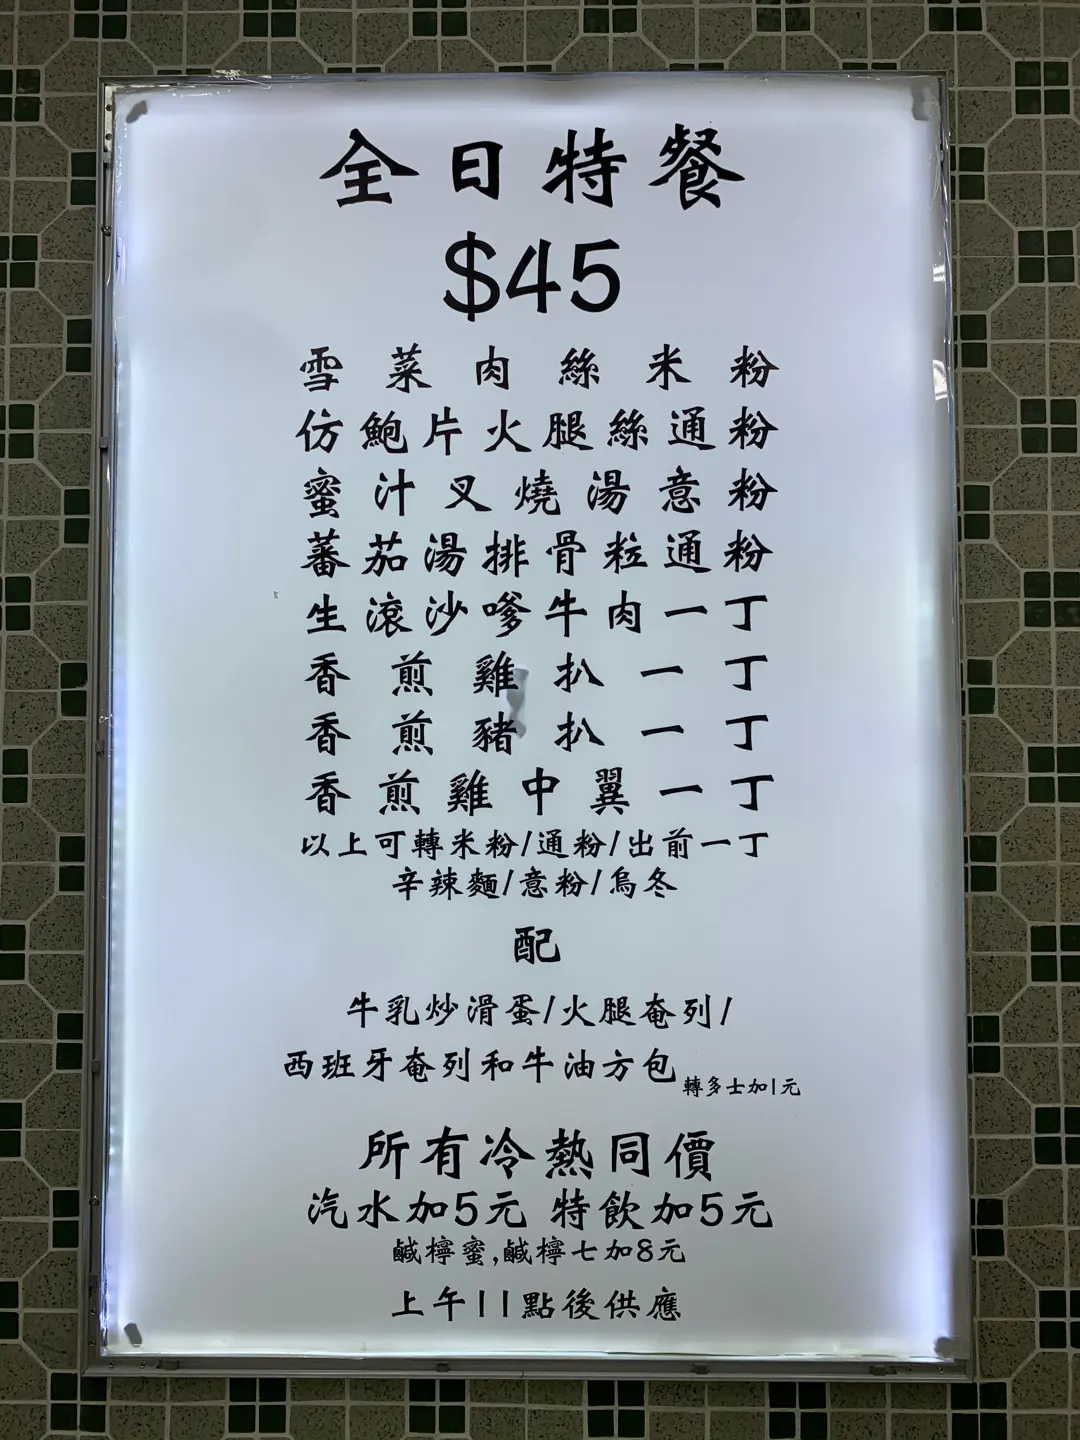 全日特餐
$45
雪菜肉絲米粉
仿鮑片火腿絲通粉
蜜汁叉燒湯意粉
蕃茄湯排骨粒通粉
生滾沙嗲牛肉一丁
香煎雞扒一丁
香煎豬扒一丁
香煎雞中翼一丁
以上可轉米粉/通粉/出前一丁
辛辣麵/意粉/烏冬
配
牛乳炒滑蛋/火腿奄列/
西班牙奄列和牛油方包 轉多士加1元
所有冷熱同價
汽水加5元 特飲加5元
鹹檸蜜,鹹檸七加8元
上午11點後供應